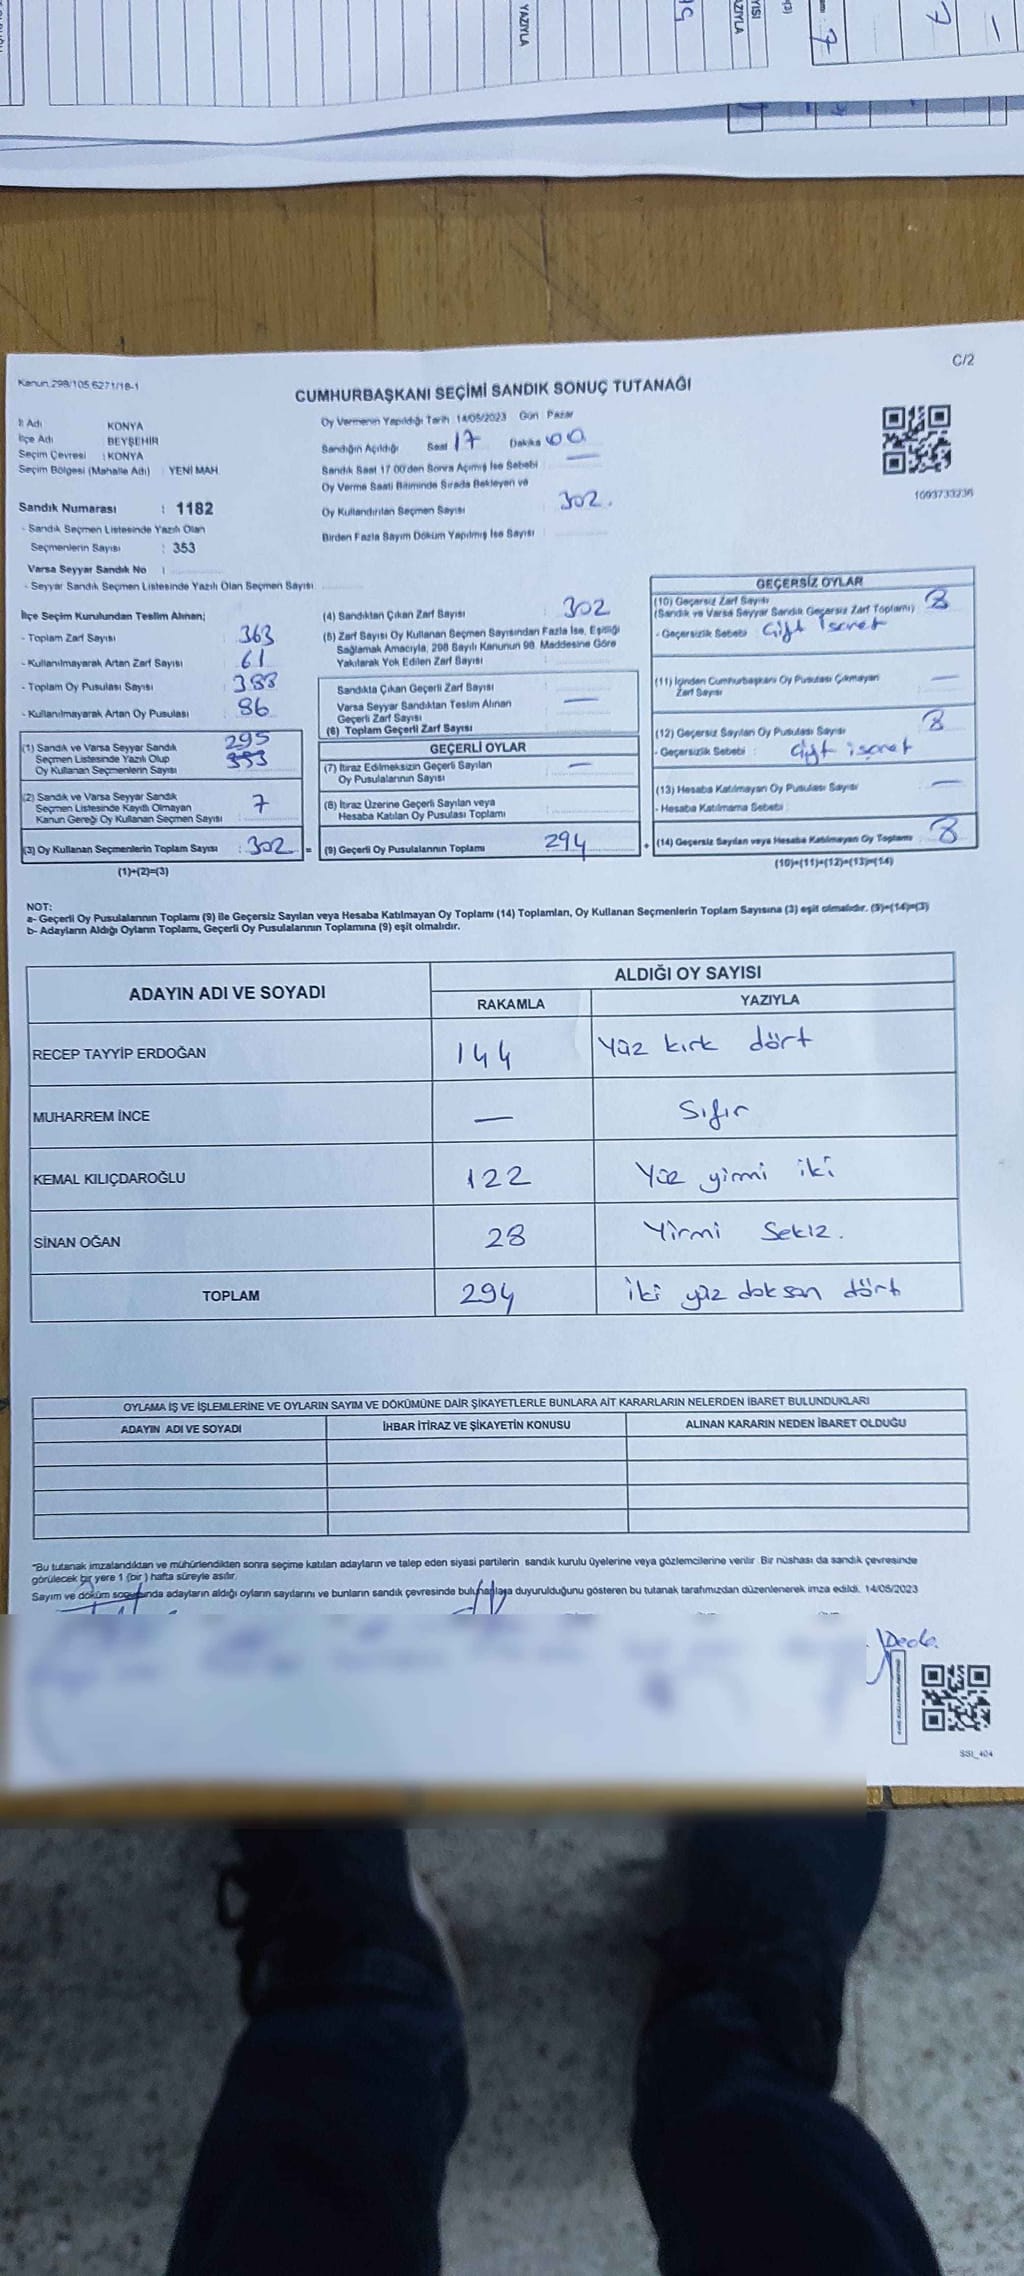 YAZIYLA
C/2
Kanun.298/105,6271/18-1
CUMHURBAŞKANI SEÇİMİ SANDIK SONUÇ TUTANAĞI
İl Adı : KONYA
İlçe Adı : BEYŞEHİR
Seçim Çevresi : KONYA
Seçim Bölgesi (Mahalle Adı) : YENİ MAH.
Oy Vermenin Yapıldığı Tarih 14/05/2023 Gün Pazar
Sandığın Açıldığı Saat 17 Dakika 00
Sandık Saat 17.00'den Sonra Açılmış İse Sebebi —
Oy Verme Saati Bitiminde Sırada Bekleyen ve
Oy Kullandırılan Seçmen Sayısı 302.
Birden Fazla Sayım Döküm Yapılmış İse Sayısı
1093733236
Sandık Numarası : 1182
- Sandık Seçmen Listesinde Yazılı Olan
Seçmenlerin Sayısı : 353
Varsa Seyyar Sandık No :
- Seyyar Sandık Seçmen Listesinde Yazılı Olan Seçmen Sayısı
İlçe Seçim Kurulundan Teslim Alınan;
- Toplam Zarf Sayısı : 363
- Kullanılmayarak Artan Zarf Sayısı : 61
- Toplam Oy Pusulası Sayısı : 388
- Kullanılmayarak Artan Oy Pusulası : 86
295
(1) Sandık ve Varsa Seyyar Sandık
Seçmen Listesinde Yazılı Olup 353
Oy Kullanan Seçmenlerin Sayısı
(2) Sandık ve Varsa Seyyar Sandık
Seçmen Listesinde Kayıtlı Olmayan 7
Kanun Gereği Oy Kullanan Seçmen Sayısı
(3) Oy Kullanan Seçmenlerin Toplam Sayısı : 302 =
(1)+(2)=(3)
(4) Sandıktan Çıkan Zarf Sayısı : 302
(5) Zarf Sayısı Oy Kullanan Seçmen Sayısından Fazla İse, Eşitliği
Sağlamak Amacıyla, 298 Sayılı Kanunun 98. Maddesine Göre
Yakılarak Yok Edilen Zarf Sayısı
Sandıkta Çıkan Geçerli Zarf Sayısı
Varsa Seyyar Sandıktan Teslim Alınan —
Geçerli Zarf Sayısı
(6) Toplam Geçerli Zarf Sayısı
GEÇERLİ OYLAR
(7) İtiraz Edilmeksizin Geçerli Sayılan —
Oy Pusulalarının Sayısı
(8) İtiraz Üzerine Geçerli Sayılan veya
Hesaba Katılan Oy Pusulası Toplamı
(9) Geçerli Oy Pusulalarının Toplamı 294 +
GEÇERSİZ OYLAR
(10) Geçersiz Zarf Sayısı 8
(Sandık ve Varsa Seyyar Sandık Geçersiz Zarf Toplamı)
- Geçersizlik Sebebi : Çift İşaret
(11) İçinden Cumhurbaşkanı Oy Pusulası Çıkmayan —
Zarf Sayısı
(12) Geçersiz Sayılan Oy Pusulası Sayısı 8
- Geçersizlik Sebebi : Çift işaret
(13) Hesaba Katılmayan Oy Pusulası Sayısı —
- Hesaba Katılmama Sebebi
(14) Geçersiz Sayılan veya Hesaba Katılmayan Oy Toplamı 8
(10)+(11)+(12)+(13)=(14)
NOT:
a- Geçerli Oy Pusulalarının Toplamı (9) ile Geçersiz Sayılan veya Hesaba Katılmayan Oy Toplamı (14) Toplamları, Oy Kullanan Seçmenlerin Toplam Sayısına (3) eşit olmalıdır. (9)+(14)=(3)
b- Adayların Aldığı Oyların Toplamı, Geçerli Oy Pusulalarının Toplamına (9) eşit olmalıdır.
ADAYIN ADI VE SOYADI ALDIĞI OY SAYISI
RAKAMLA YAZIYLA
RECEP TAYYİP ERDOĞAN 144 Yüz kırk dört
MUHARREM İNCE — Sıfır
KEMAL KILIÇDAROĞLU 122 Yüz yirmi iki
SİNAN OĞAN 28 Yirmi Sekiz.
TOPLAM 294 iki yüz doksan dört
OYLAMA İŞ VE İŞLEMLERİNE VE OYLARIN SAYIM VE DÖKÜMÜNE DAİR ŞİKAYETLERLE BUNLARA AİT KARARLARIN NELERDEN İBARET BULUNDUKLARI
ADAYIN ADI VE SOYADI İHBAR İTİRAZ VE ŞİKAYETİN KONUSU ALINAN KARARIN NEDEN İBARET OLDUĞU
*Bu tutanak imzalandıktan ve mühürlendikten sonra seçime katılan adayların ve talep eden siyasi partilerin sandık kurulu üyelerine veya gözlemcilerine verilir. Bir nüshası da sandık çevresinde
görülecek bir yere 1 (bir) hafta süreyle asılır.
Sayım ve döküm sonucunda adayların aldığı oyların sayılarını ve bunların sandık çevresinde bulunanlara duyurulduğunu gösteren bu tutanak tarafımızdan düzenlenerek imza edildi. 14/05/2023
SSI_404